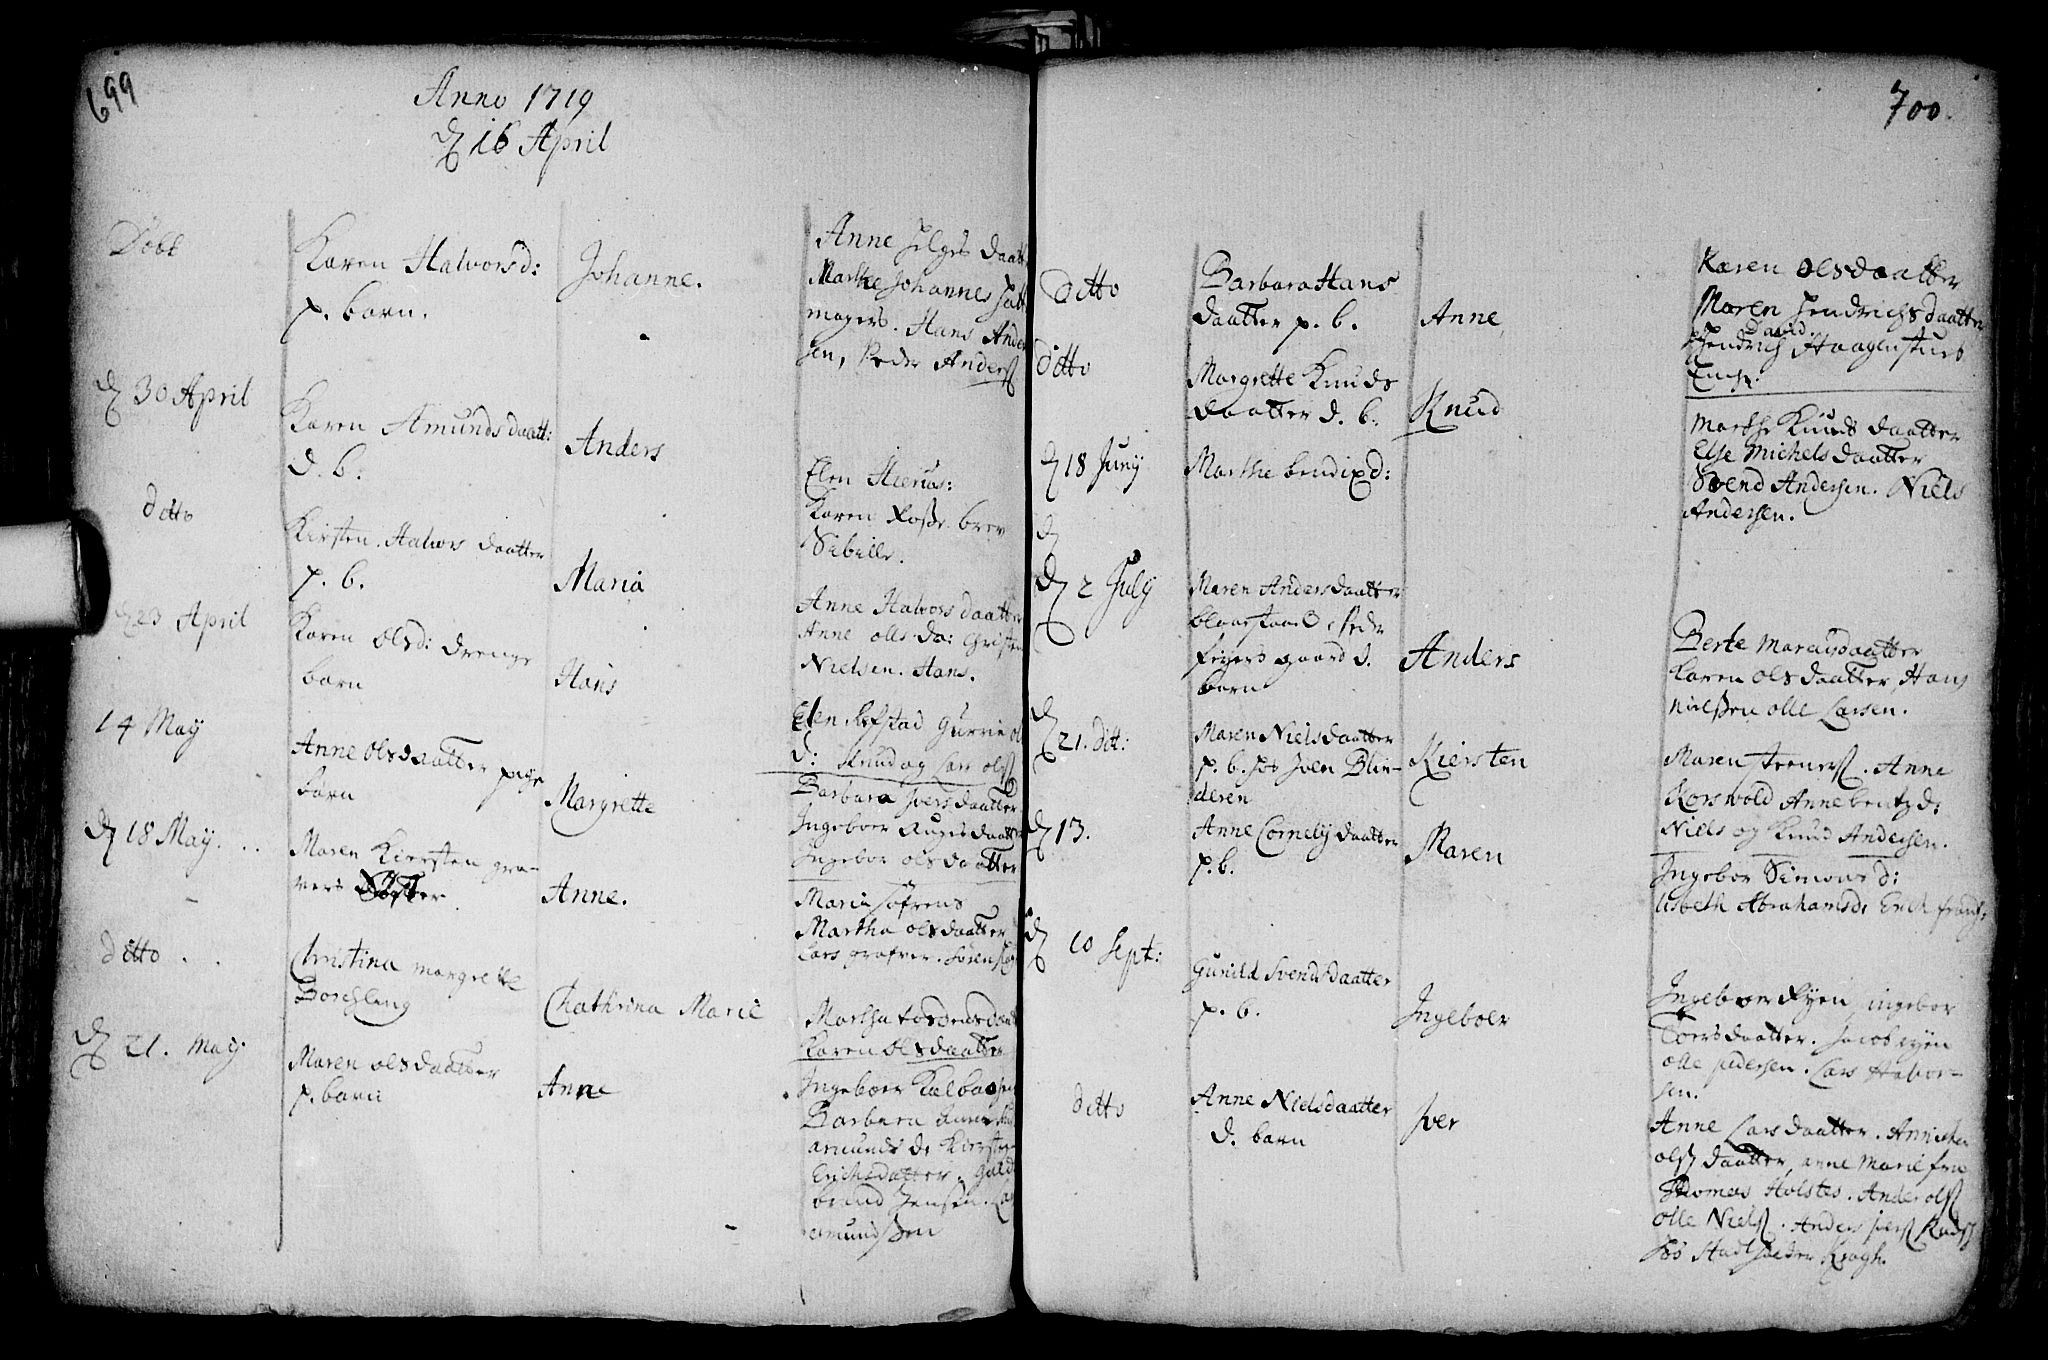 699
Anno 1719
d 16 April
Döbt
Karen Halvorsd:
p. barn.
Johanne.
Anne Helges daatt
Marthe Johannes Hatt
magers. Hans Ander
sen, Peder Anders
d 30 April
Karen Amunds daatt:
d. b.
Anders
Elen Hierus:
Karen Rosse. brev
Sibille.
ditto
Kirsten Halvors daatter
p. b.
Maria
Anne Halvors daatter
Anne olls da: Christen
Nielsen. Hans.
d 23 April
Karen Olsd: drenge
barn
Hans
Elen Refstad Gurrie ols
d: Knud og Lars ols
14 May
Anne Olsdaatter pige
barn
Margrette
Barbara Ivers daatter
Ingeboer Auges daatt
Ingebor ols daatter
d 18 May . . .
Maren Kiersten gra-
vers
Anne.
Maria Söfrens
Martha olsdaatter
Lars grafver. Sören
ditto . .
Christina margrette
Borchling
Chathrina Marie
Martha tordensdaatt
Karen Olsdaatter
d 21. May
Maren olsdaatter
p. barn
Anne
Ingeboer Kalba
Barbara
amunds d. Kiersten
Erichsdatter. Guld
brand Jensen. La
amundssen
700.
ditto
Barbara Hans
daatter p. b.
Anne
Karen Olsdaatter
Maren Hendrichsdaatter
David
Hendrich Haagenstues
Enche.
ditto
Margrette Knuds
daatter d. b.
Knud
Marthe Knuds daatter
Else Michelsdaatter
Svend Andersen. Niels
Andersen.
d 18 Junij
Marthe bendixd:
d
d 2 July
Maren Andersdaatter
Peder
gaard d.
barn
Anders
Berte Marcusdaatter
Karen olsdaatter, Hans
Nielssen olle Larsen.
d
21. dit:
Maren Nielsdaatter
p. b. hos Joen Blin-
deren
Kiersten
Maren steners. Anne
Korsvold Anne bentzd:
Niels og Knud Andersen.
d 13.
Anne Cornelij daatter
p. b.
Maren
Ingebor Simons d:
Lisbeth Abrahamsd, Erich frants
d 10 Sept:
Gunild Svendsdaatter
p. b.
Ingeboer
Ingeboer Ryen, ingebor
Toersdaatter. Jacob ryen
olle pedersen. Lars Halvor-
sen.
ditto
Anne Nielsdaatter
d. barn
Iver
Anne Larsdaatter. Anniken
ols daatter, anne Marie fru
Thomas Holstes. Ander ols
olle Niels. Anders pers
hos Stadtholder Kragh.